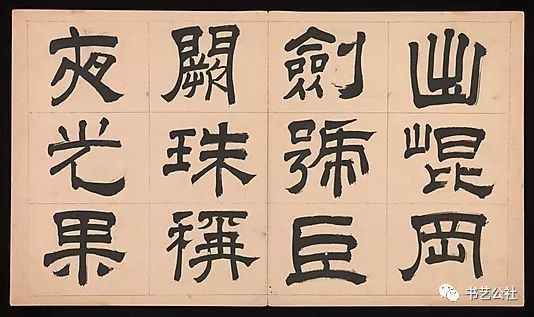 出崐岡
劍號巨
闕珠稱
夜光果
书艺公社